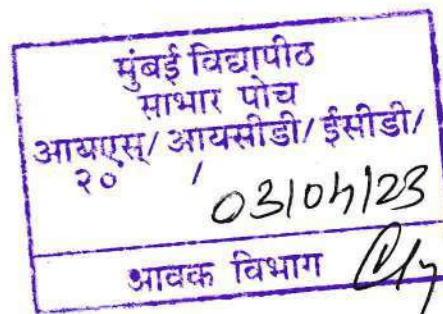 मुंबई विद्यापीठ
साभार पोच
आयएस्/ आयसीडी/ ईसीडी/
२० /
03/04/23
आवक विभाग